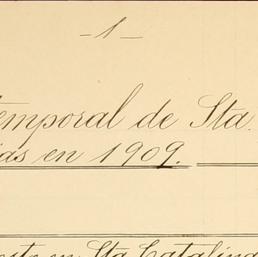 - 1 -
temporal de Sta.
ias en 1909.
en Sta Catalina